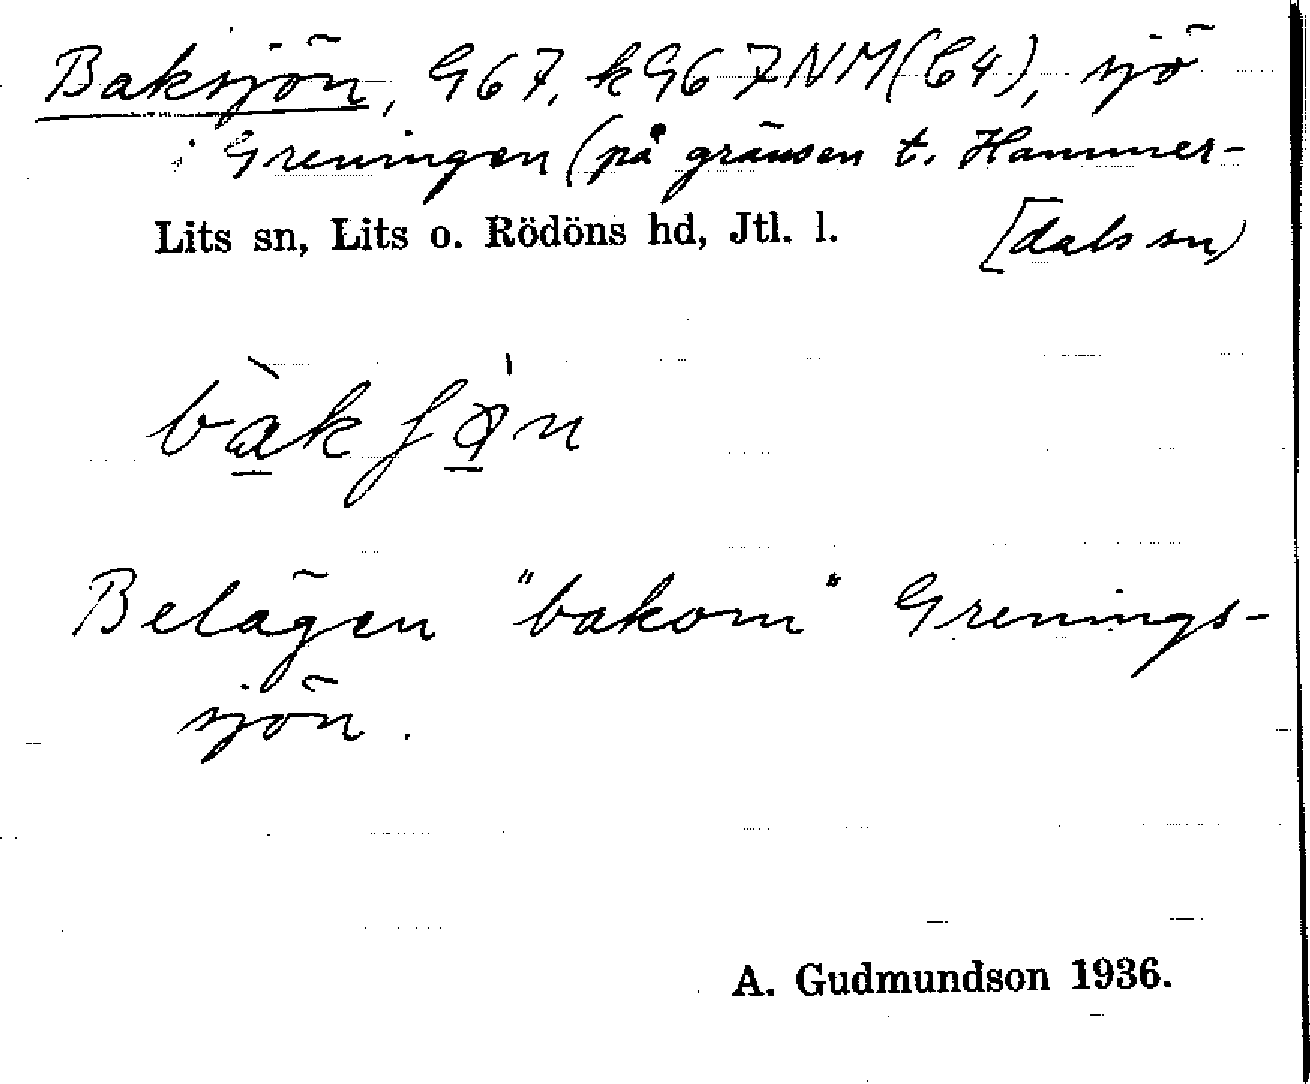 Baksjön, G67, kG67NM(C4), sjö
i Greningen (på gränsen t. Hammer-
[dals sn)
Lits sn, Lits o. Rödöns hd, Jtl. l.
Belägen "bakom" Grenings-
sjön.
A. Gudmundson 1936.